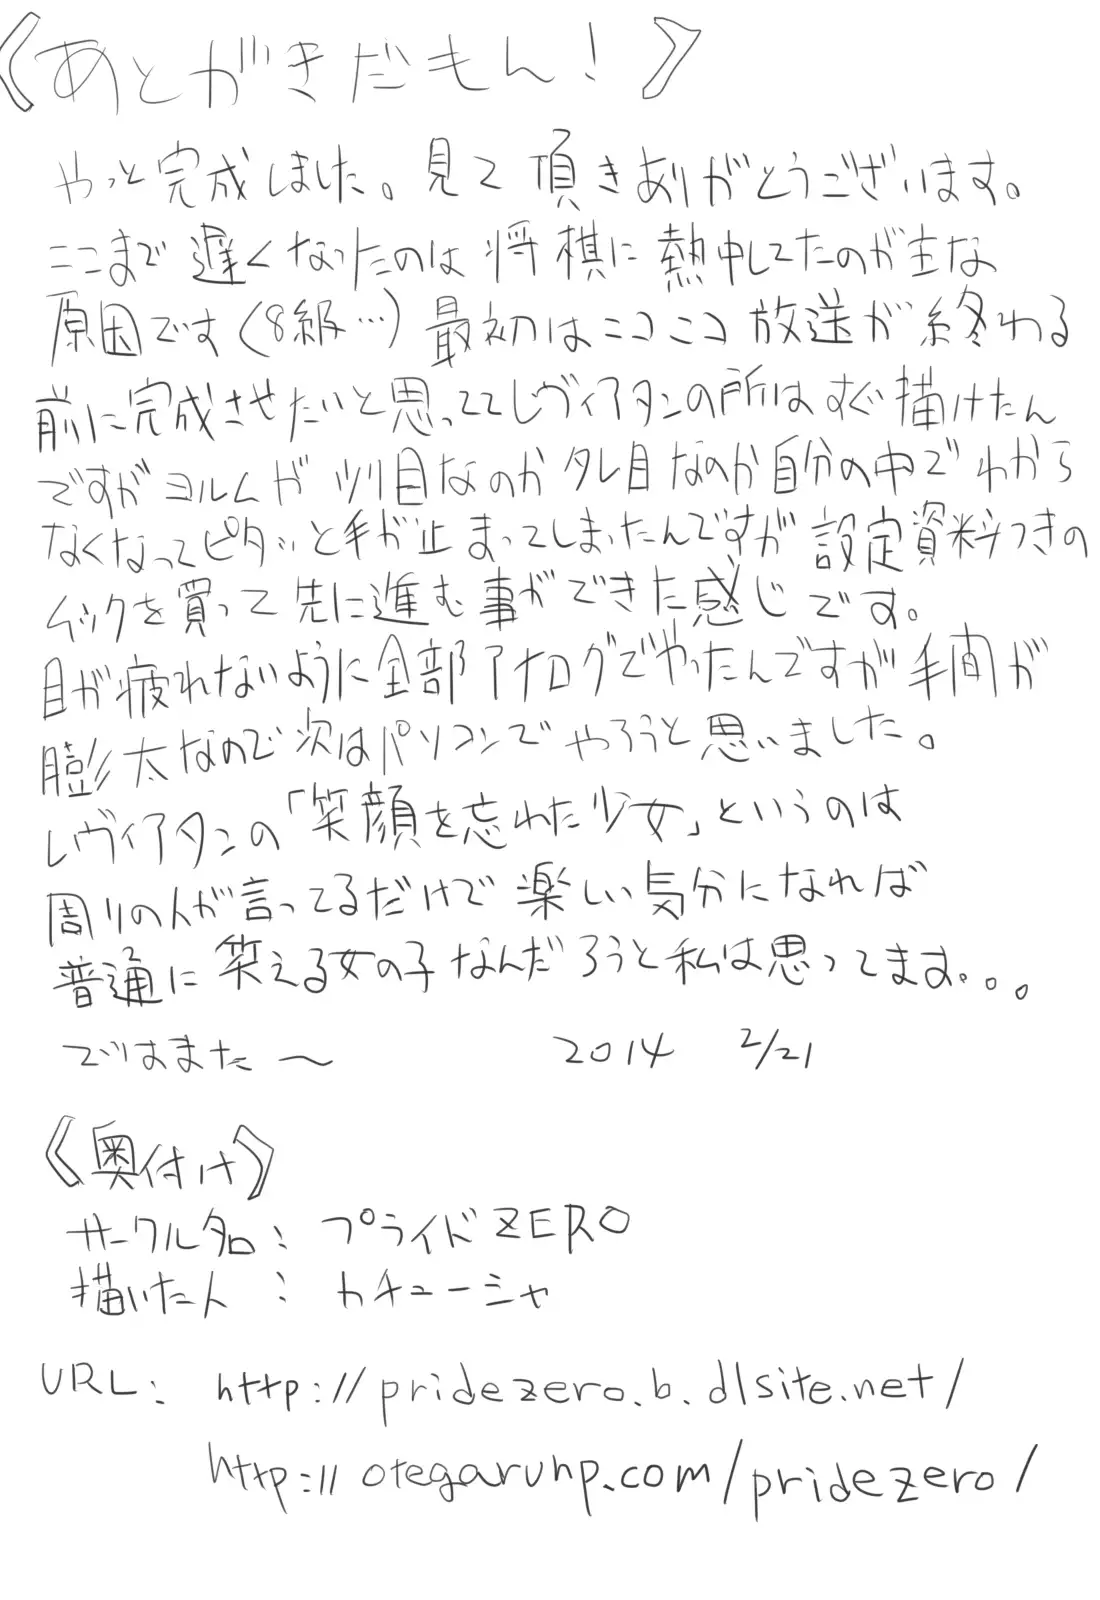 《あとがきだもん!》
やっと完成しました。見て頂きありがとうございます。
ここまで遅くなったのは将棋に熱中してたのが主な
原因です(8級…)最初はニコニコ放送が終わる
前に完成させたいと思っててレヴィアタンの所はすぐ描けたん
ですがヨルムがツリ目なのかタレ目なのか自分の中でわから
なくなってピタッと手が止まってしまったんですが設定資料つきの
ムックを買って先に進む事ができた感じです。
目が疲れないように全部アナログでやったんですが手間が
膨大なので次はパソコンでやろうと思いました。
レヴィアタンの「笑顔を忘れた少女」というのは
周りの人が言ってるだけで楽しい気分になれば
普通に笑える女の子なんだろうと私は思ってます。。。
ではまた〜 2014 2/21
《奥付け》
サークル名:プライドZERO
描いた人:カチューシャ
URL: http://pridezero.b.dlsite.net/
http://otegaruhp.com/pridezero/